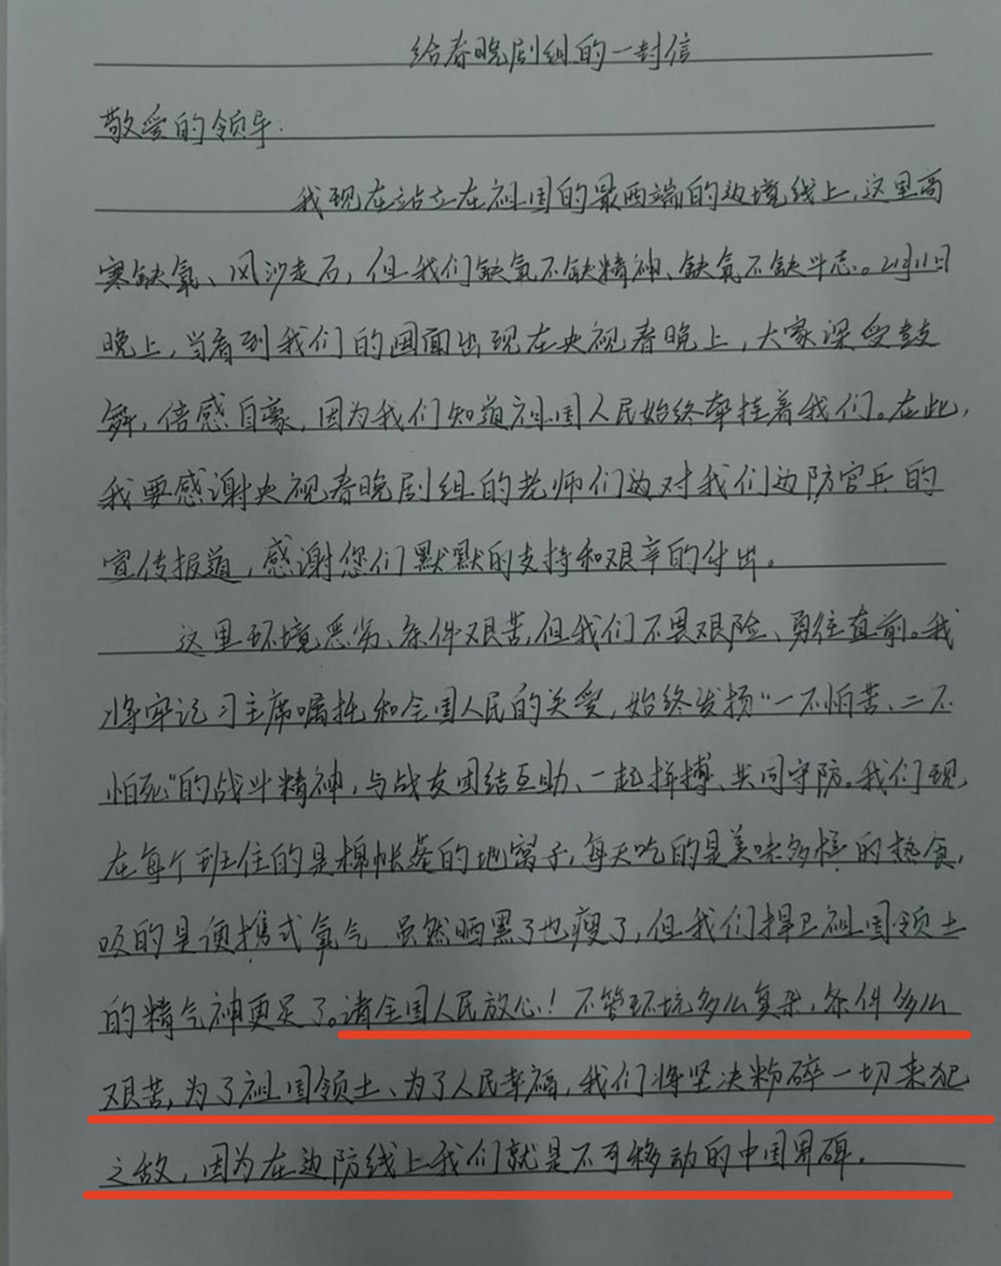 给春晚剧组的一封信
敬爱的领导:
我现在站立在祖国的最西端的边境线上,这里高
寒缺氧、风沙走石,但我们缺氧不缺精神、缺氧不缺斗志。2月11日
晚上,当看到我们的画面出现在央视春晚上,大家深受鼓
舞,倍感自豪,因为我们知道祖国人民始终牵挂着我们。在此,
我要感谢央视春晚剧组的老师们对我们边防官兵的
宣传报道,感谢您们默默的支持和艰辛的付出。
这里环境恶劣、条件艰苦,但我们不畏艰险、勇往直前。我
将牢记习主席嘱托和全国人民的关爱,始终发扬“一不怕苦、二不
怕死”的战斗精神,与战友团结互助、一起拼搏、共同守防。我们现
在每个班住的是棉帐篷的地窝子,每天吃的是美味多样的热食,
吸的是便携式氧气,虽然晒黑了也瘦了,但我们捍卫祖国领土
的精气神更足了。请全国人民放心!不管环境多么复杂,条件多么
艰苦,为了祖国领土、为了人民幸福,我们将坚决粉碎一切来犯
之敌,因为在边防线上我们就是不可移动的中国界碑。